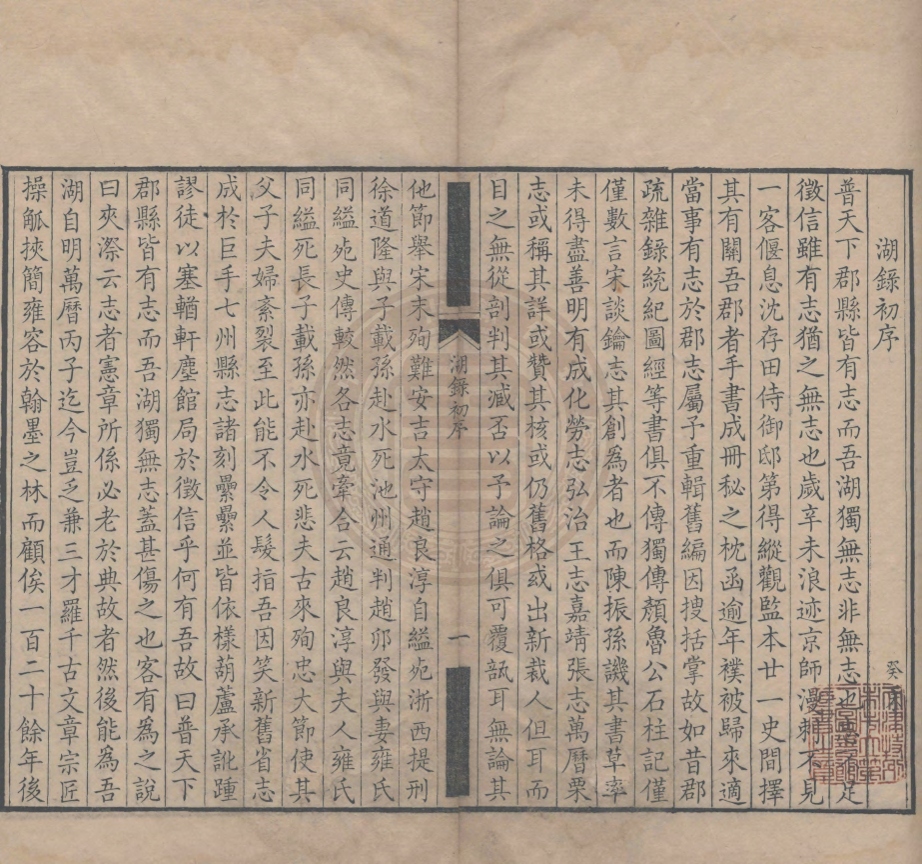 湖錄初序
癸
普天下郡縣皆有志而吾湖獨無志非無志也不足
徵信雖有志猶之無志也歲辛未浪迹京師漫刺不見
一客偃息沈存田侍御邸第得縱觀監本廿一史間擇
其有關吾郡者手書成冊秘之枕函逾年襆被歸來適
當事有志於郡志屬予重輯舊編因搜括掌故如昔郡
疏雜錄統紀圖經等書俱不傳獨傳顏魯公石柱記僅
僅數言宋談鑰志其創為者也而陳振孫譏其書草率
未得盡善明有成化勞志弘治王志嘉靖張志萬曆栗
志或稱其詳或贊其核或仍舊格或出新裁人但耳而
目之無從剖判其臧否以予論之俱可覆瓿耳無論其
湖錄初序
一
他節舉宋末殉難安吉太守趙良淳自縊死浙西提刑
徐道隆與子載孫赴水死池州通判趙卯發與妻雍氏
同縊死史傳較然各志竟牽合云趙良淳與夫人雍氏
同縊死長子載孫亦赴水死悲夫古來殉忠大節使其
父子夫婦紊裂至此能不令人髮指吾因笑新舊省志
成於巨手七州縣志諸刻纍纍並皆依樣葫蘆承訛踵
謬徒以塞輶軒塵館局於徵信乎何有吾故曰普天下
郡縣皆有志而吾湖獨無志蓋甚傷之也客有為之說
曰夾漈云志者憲章所係必老於典故者然後能為吾
湖自明萬曆丙子迄今豈乏兼三才羅千古文章宗匠
操觚挾簡雍容於翰墨之林而顧俟一百二十餘年後